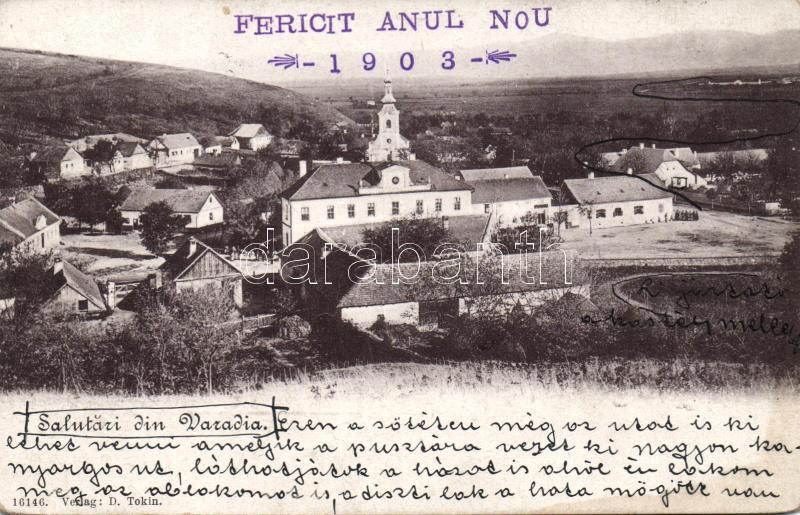 FERICIT ANUL NOU
- 1903 -
darabanth
a kastély mellett
Salutări din Varadia. Ezen a sötéten még az utat is ki
lehet venni amelyik a pusztára vezet ki nagyon ka-
nyargos ut, láthatjátok a házat is ahol én lakom
meg az ablakomat is, a diszti lak a háta mögött van
16146. Verlag: D. Tokin.